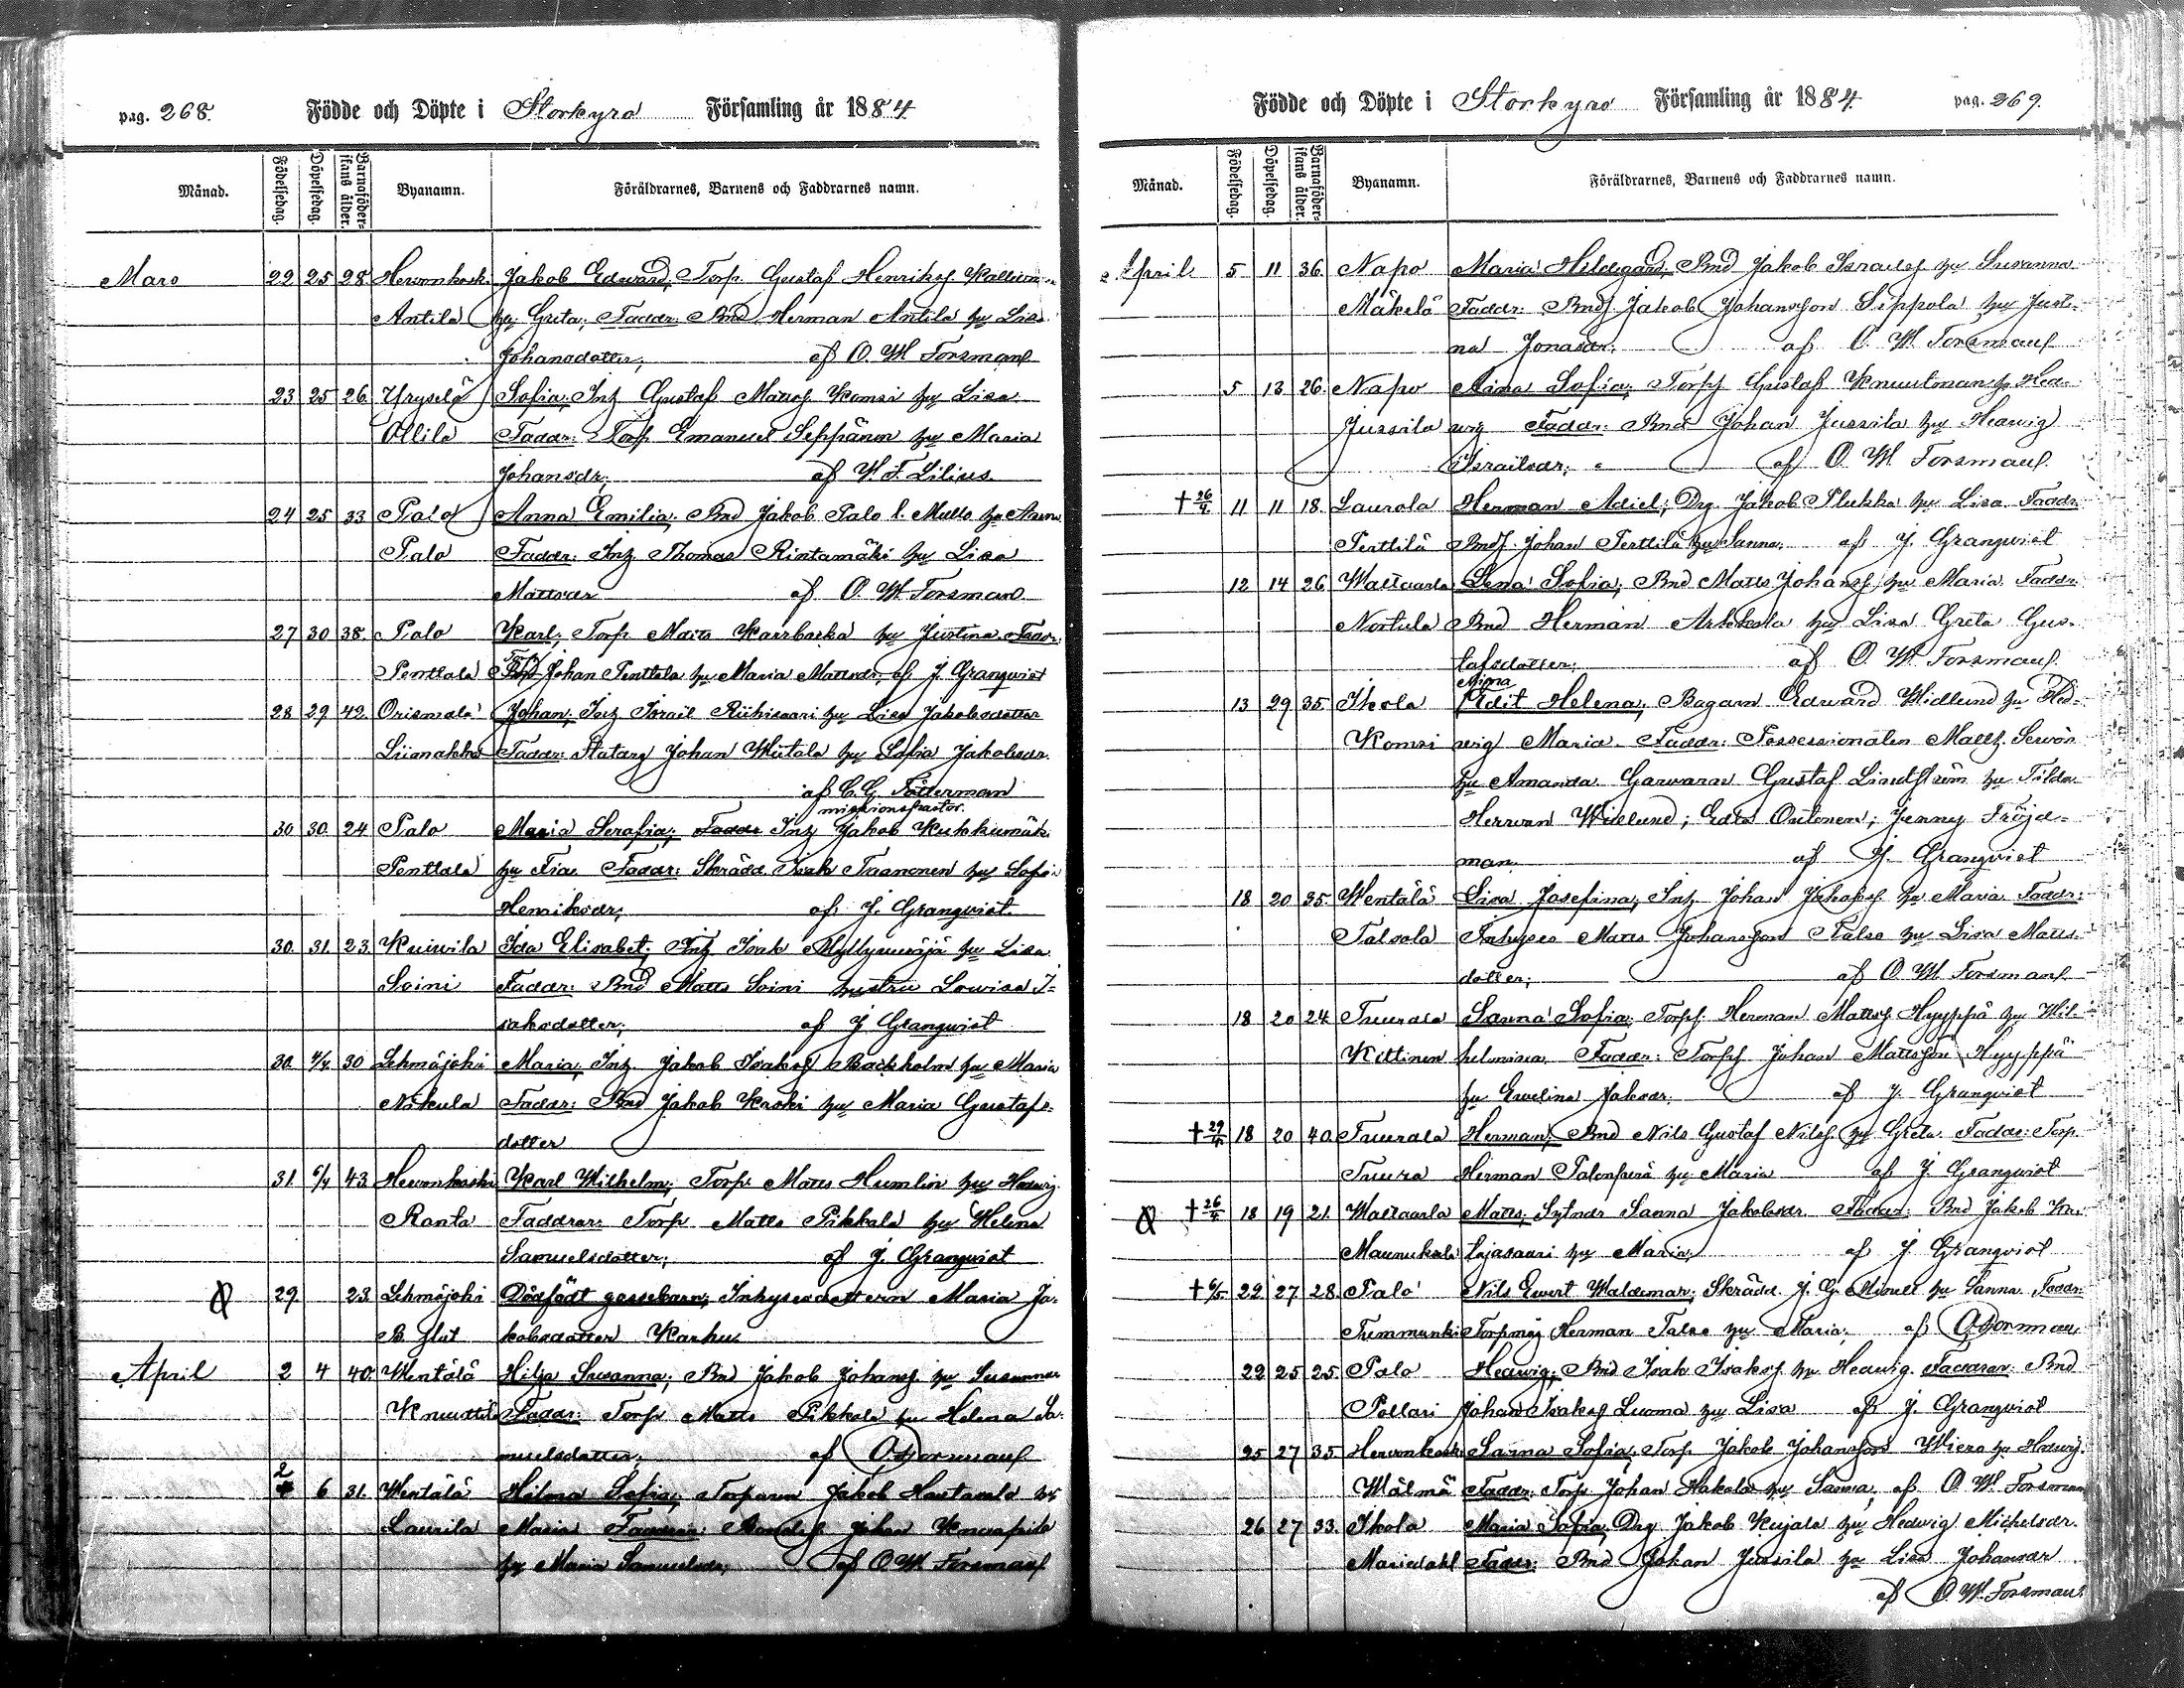 pag. 268. Födde och Döpte i Storkyro Församling år 1884
Månad. Födelsedag. Döpelsedag. Barnaföderskans ålder. Byanamn. Föräldrarnes, Barnens och Faddrarnes namn.
Mars 22 25 28. Hevonkosk. Jakob Edward; Torp. Gustaf Henriksf
Antila hu Greta; Faddr: Bnd Herman Antila hu Lisa
Johansdotter; af O. W. Forsman
23 25 26. Yryselä Sofia; Inh Gustaf Mattsf Komsi hu Lisa
Ollila Faddr: Torp Emanuel Seppänen hu Maria
Johansdr; af W. F. Lilius
24 25 33 Palo Anna Emilia; Bnd Jakob Palo l. Matts hu Anna
Palo Faddr: Inh Thomas Rintamäki hu Lisa
Mattsdr af O. W. Forsman
27 30 38. Palo Karl; Torp Matts hu Justina Faddr:
Penttala Torp Johan Penttala hu Maria Mattsdr; af J. Granqvist
28 29 42. Orismala Johan; Inh Israil Riihisaari hu Lisa Jakobsdotter
Liimakka Faddr: Statarg Johan Mutala hu Sofia Jakobsdr
af C. G. Tötterman
missionspastor.
30 30. 24 Palo Maria Serafia; Faddr Inh Jakob Kukkumäk.
Penttala hu Fia. Faddr: Skrädd. Isak Taanonen hu Sofia
Henriksdr; af J. Granqvist
30. 31. 23. Kuiwila Ida Elisabet; Inh Isak Myllymäjä hu Lisa.
Soini Faddr: Bnd Matts Soini hustru Lowisa I-
saksdotter; af J Granqvist
30. 4/4 30 Lehmäjoki Maria; Inh. Jakob Isaksf Backholm hu Maria
Nikula Faddr: Bnd Jakob Koski hu Maria Gustafs-
dotter
31. 6/4 43 Hevonkoski Karl Wilhelm; Torp. Matts Humlin hu Hedwig
Ranta Faddrar: Torp Matts Pikkala hu Helena
Samuelsdotter; af J. Granqvist
29. 23. Lehmäjoki Dödfödt gossebarn; Inhysesdottern Maria Ja-
kobsdotter Karhu
April 2 4 40. Wentälä Hilja Susanna; Bnd Jakob Johansf hu Susanna
Knuuttila Faddr: Torp Matts Pikkala hu Helena Sa-
muelsdotter; af O Forsman
2 6 31. Wentälä Hilma Sofia; Torparen Jakob hu
Laurila Maria Faddrar: Johan
hu Maria Samuelsdr; af O. W. Forsman
Födde och Döpte i Storkyro Församling år 1884. pag. 269.
Månad. Födelsedag. Döpelsedag. Barnaföderskans ålder. Byanamn. Föräldrarnes, Barnens och Faddrarnes namn.
April 5 11 36. Napo Maria Hildegard; Bnd Jakob Israelsf hu Susanna
Mäkelä Faddr: Bndf Jakob Johansson Seppola hu Justi-
na Jonasdr; af O. W. Forsman
5 13 26. Napo Aina Sofia; Torpf Gustaf Knuutonan hu Hed-
Jussila wig Faddr: Bnd Johan Jussila hu Hedwig
Israilsdr; af O. W. Forsman.
† 26/4 11 11 18. Laurola Herman Adiel; Drg. Jakob Plukka hu Lisa. Faddr:
Perttilä Bndf. Johan Perttilä hu Sanna; af J. Granqvist
12 14 26 Waltaarla Lena Sofia; Bnd Matts Johansf hu Maria. Faddr:
Bnd Herman hu Lisa Greta Gus-
tafsdotter; af O. W. Forsman
Mina
13 29 35. Ikola Edit Helena; Bagarn Edward Widlund hu Hed-
Komsi wig Maria. Faddr: Possessionaten Matts Serwön
hu Amanda. Garvaren Gustaf Lindström hu Tilda.
Herrman Widlund; Edla Outonen; Jenny Fröjd-
man af J. Granqvist
18 20 35. Wentälä Lisa Josefina; Inh. Johan Jakobsf hu Maria Faddr:
Talsola Inhyses Matts Johansson Talso hu Lisa Matts-
dotter; af O. W. Forsman
18 20 24. Tuurala Sanna Sofia; Torpf Herman Mattsf Hyyppä hu Wil-
Kittinen helmina. Faddr: Torpf. Johan Mattsson Hyyppä
hu Ewelina Jaksdr. af J. Granqvist
† 29/4 18 20 40. Tuurala Herman; Bnd Nils Gustaf Nilsf. hu Greta. Faddr: Torp.
Tuura Herman Palonperä hu Maria af J Granqvist
† 26/4 18 19 21. Waltaarla Matts; Sytnär Sanna Jakobsdr Faddr: Bnd Jakob Ka-
Maunuksela tajasaari hu Maria; af J Granqvist
† 6/5 22 27 28. Palo Nils Ewert Waldemar; Skrädd. J. G. Minell hu Sanna. Faddr:
Torpmåg Herman Talso hu Maria; af O Forsman
22 25 25. Palo Hedwig; Bnd Isak Isaksf hu Hedwig. Faddrar: Bnd
Pollari Johan Isaksf Luoma hu Lisa af J. Granqvist
25 27 35. Hevonkoski Sanna Sofia; Torp. Jakob Johansson Wiero hu Hedwig.
Wälmä Faddr: Torp Johan Hakola hu Sanna; af O. W. Forsman
26 27 33. Ikola Maria Sofia; Drg Jakob Kujala hu Hedwig Michelsdr.
Mariedahl Faddr: Bnd Johan Jussila hu Lisa Johansdr
af O. W. Forsman